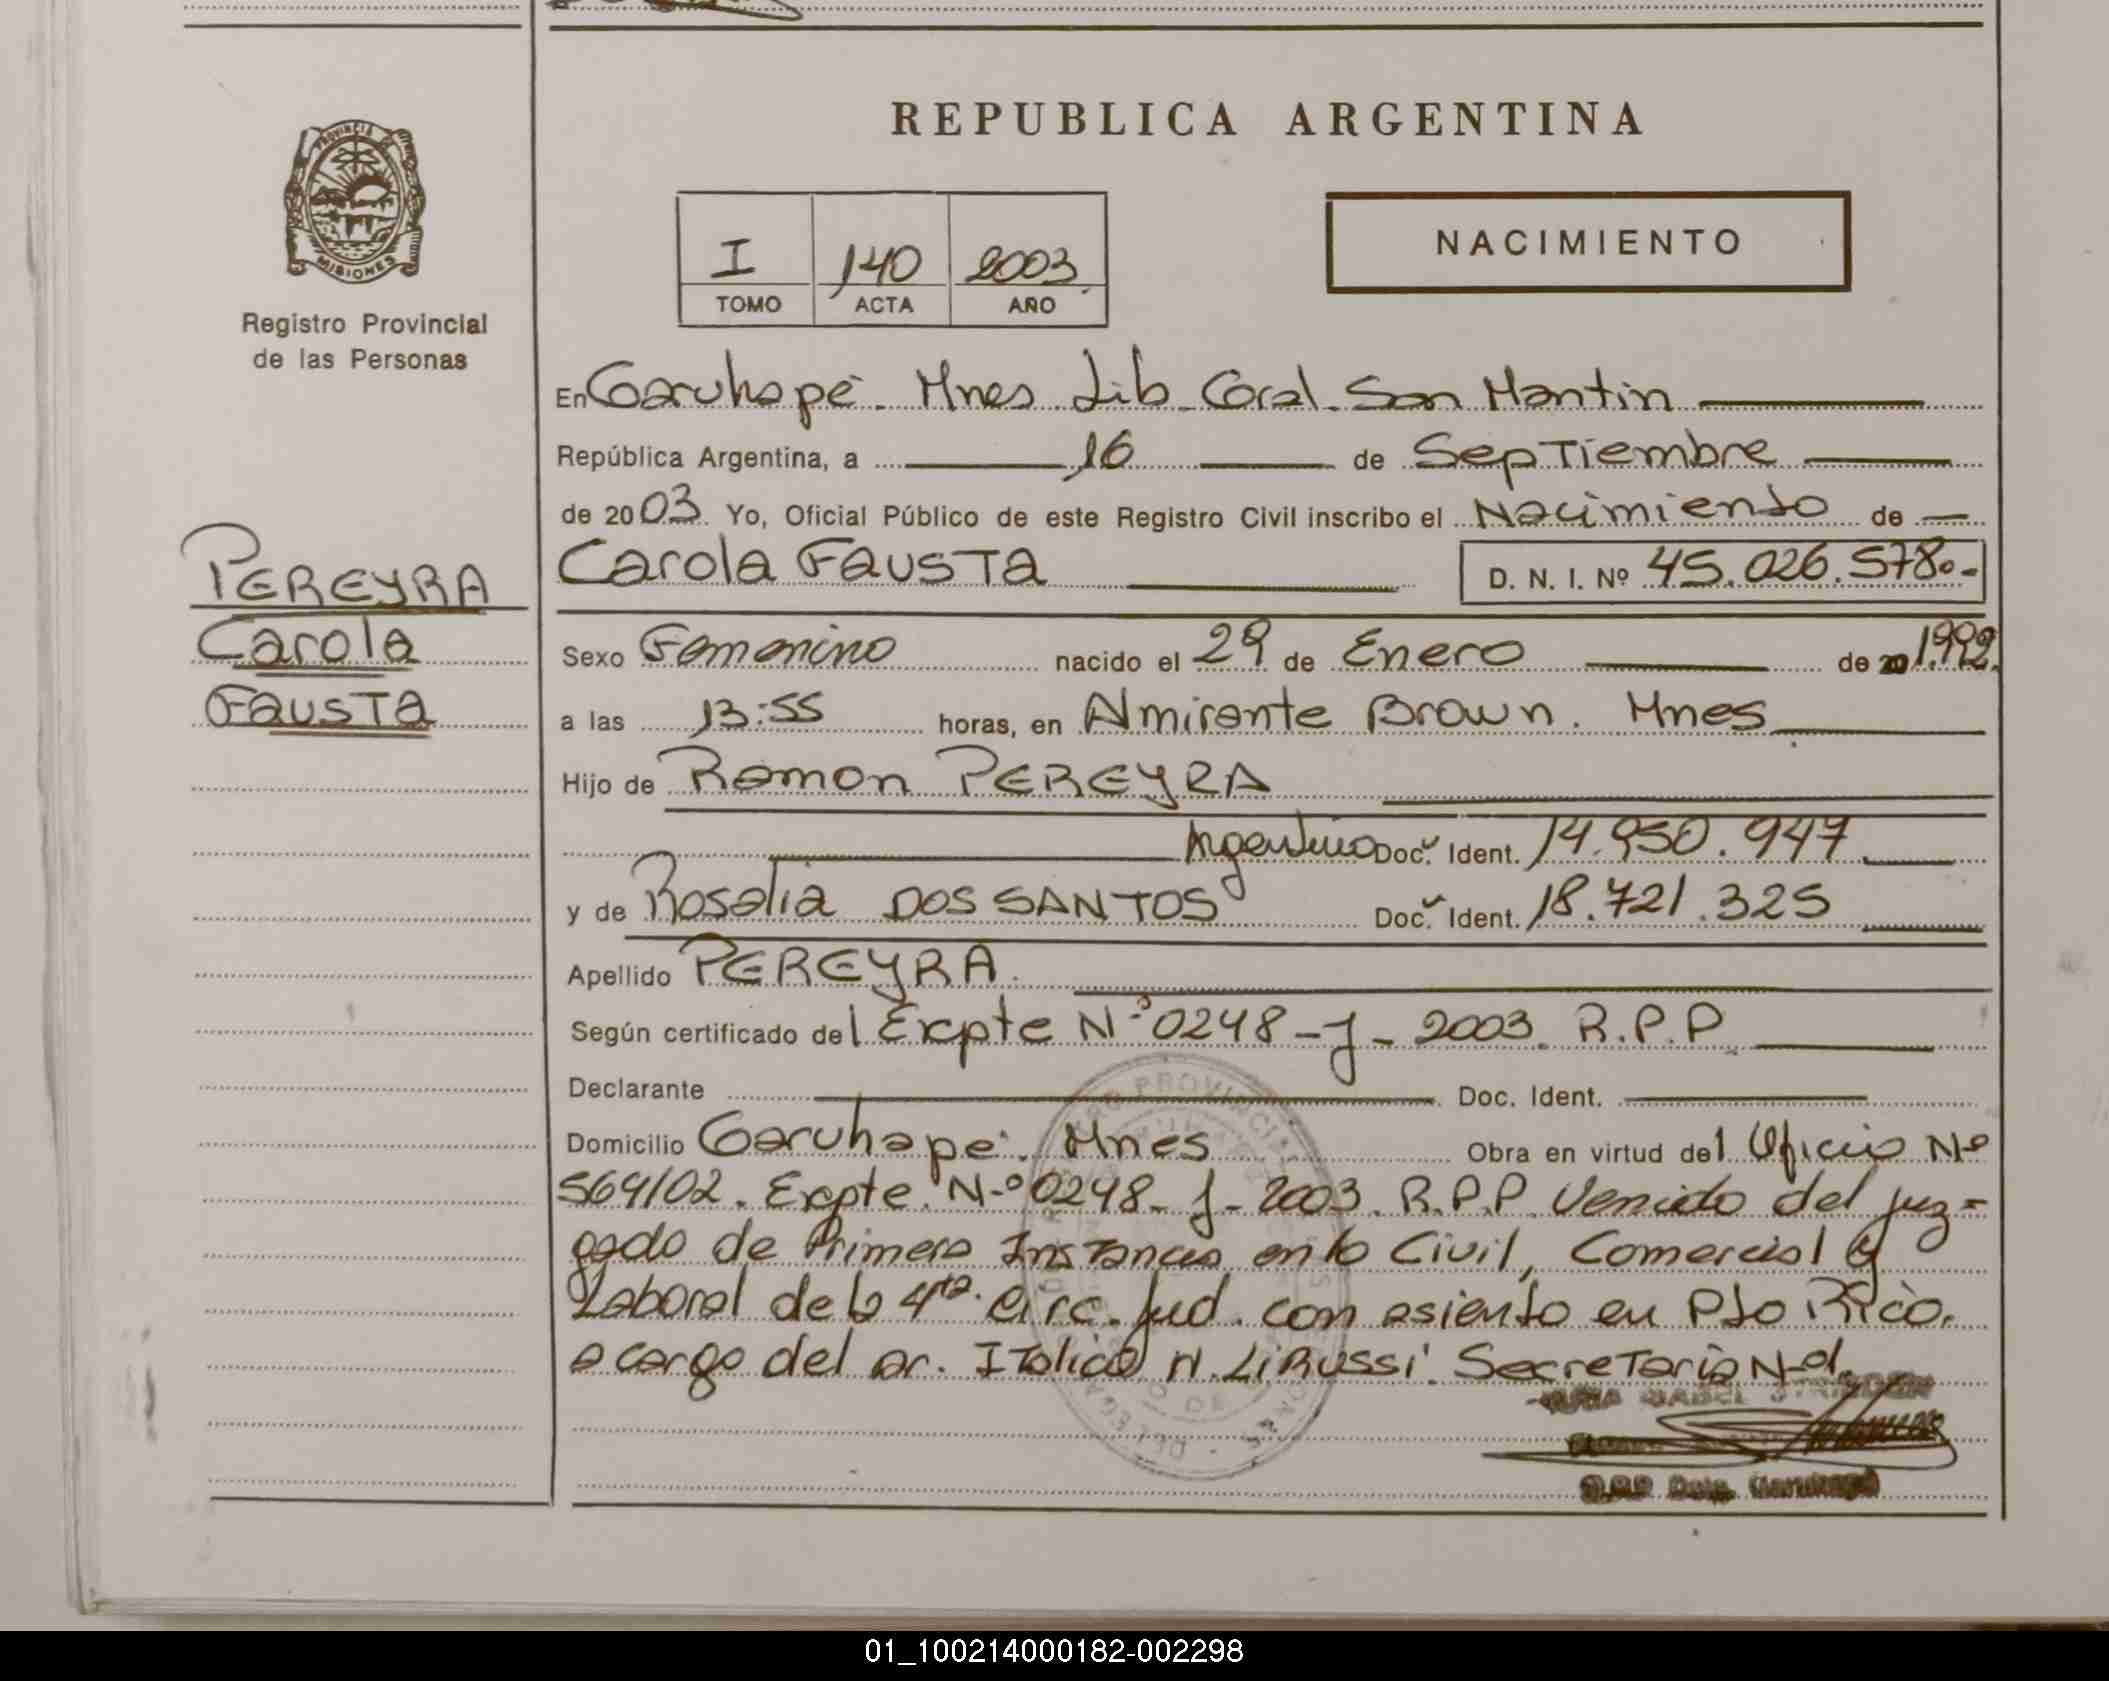 REPUBLICA ARGENTINA
PROVINCIA
MISIONES
Registro Provincial
de las Personas
I 140 2003
TOMO ACTA AÑO
NACIMIENTO
En Garuhapé. Mnes Lib. Gral. San Martin
República Argentina, a 16 de Septiembre
de 2003. Yo, Oficial Público de este Registro Civil inscribo el Nacimiento de
Carola Fausta D. N. I. Nº 45.026.578.-
PEREYRA
Carola
Fausta
Sexo Femenino nacido el 29 de Enero de 1992.
a las 13:55 horas, en Almirante Brown. Mnes
Hijo de Ramon PEREYRA
Argentino Doc. Ident. 14.950.947
y de Rosalia DOS SANTOS Doc. Ident. 18.721.325
Apellido PEREYRA.
Según certificado del Expte Nº 0248-J-2003. R.P.P.
Declarante Doc. Ident.
Domicilio Garuhape. Mnes Obra en virtud del Oficio Nº
564/02. Expte. Nº 0248-J-2003. R.P.P. Venido del Juz=
gado de Primera Instancia en lo Civil, Comercial y
Laboral de la 4ta. Circ. Jud. con asiento en Pto Rico.
a cargo del Dr. Italico N. LiRussi. Secretaria Nº 1.
01_100214000182-002298